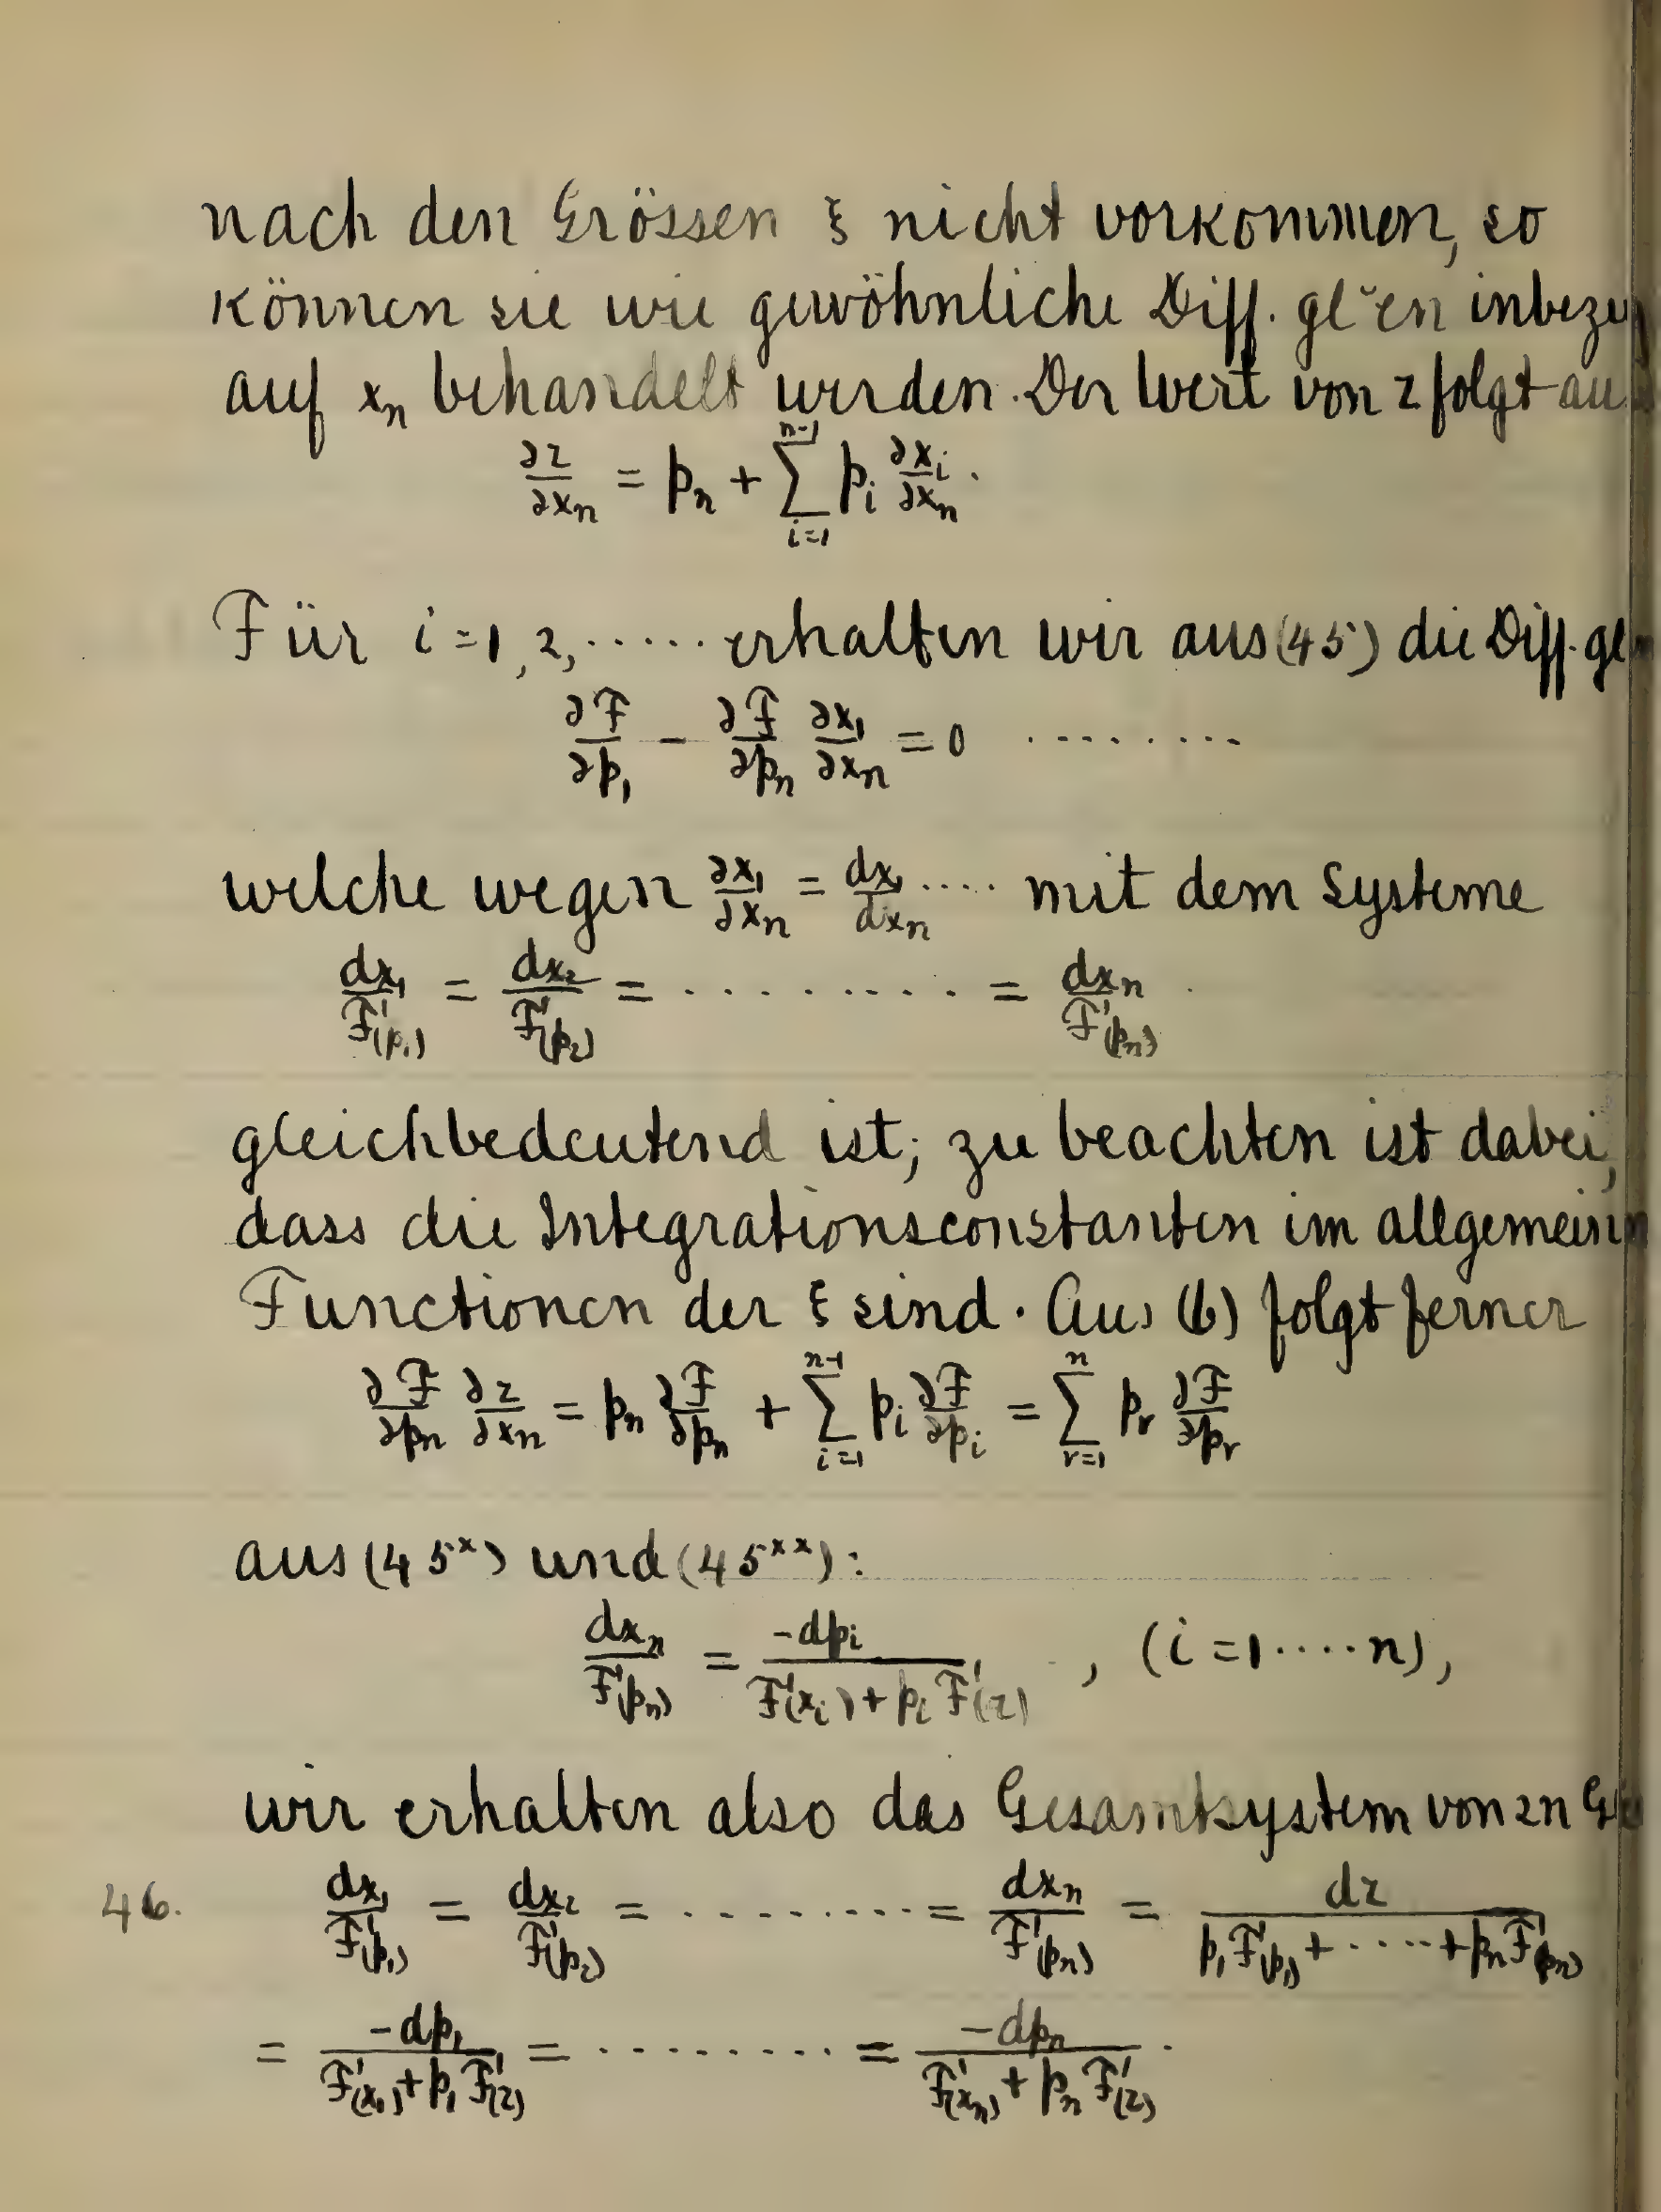 nach den Grössen ξ nicht vorkommen, so
können sie wie gewöhnliche Diff. gl˘en inbezu
auf xₙ behandelt werden. Der Wert von z folgt au
∂z/∂xₙ = pₙ + ∑_{i=1}^{n-1} pᵢ ∂xᵢ/∂xₙ.
Für i = 1, 2, ..... erhalten wir aus (45) die Diff. gl
∂F/∂p₁ − ∂F/∂pₙ ∂x₁/∂xₙ = 0 ........
welche wegen ∂x₁/∂xₙ = dx₁/dxₙ .... mit dem Systeme
dx₁/F'(p₁) = dx₂/F'(p₂) = .......... = dxₙ/F'(pₙ) .
gleichbedeutend ist; zu beachten ist dabei,
dass die Integrationsconstanten im allgemeinen
Functionen der ξ sind. Aus (6) folgt ferner
∂F/∂pₙ ∂z/∂xₙ = pₙ ∂F/∂pₙ + ∑_{i=1}^{n-1} pᵢ ∂F/∂pᵢ = ∑_{r=1}^{n} pᵣ ∂F/∂pᵣ
aus (45ˣ) und (45ˣˣ):
dxₙ/F'(pₙ) = -dpᵢ/(F'(xᵢ) + pᵢ F'(z)) , (i = 1 .... n),
wir erhalten also das Gesamtsystem von 2n Gl
46. dx₁/F'(p₁) = dx₂/F'(p₂) = ......... = dxₙ/F'(pₙ) = dz/(p₁F'(p₁) + ..... + pₙF'(pₙ))
= -dp₁/(F'(x₁) + p₁F'(z)) = ......... = -dpₙ/(F'(xₙ) + pₙF'(z)) .